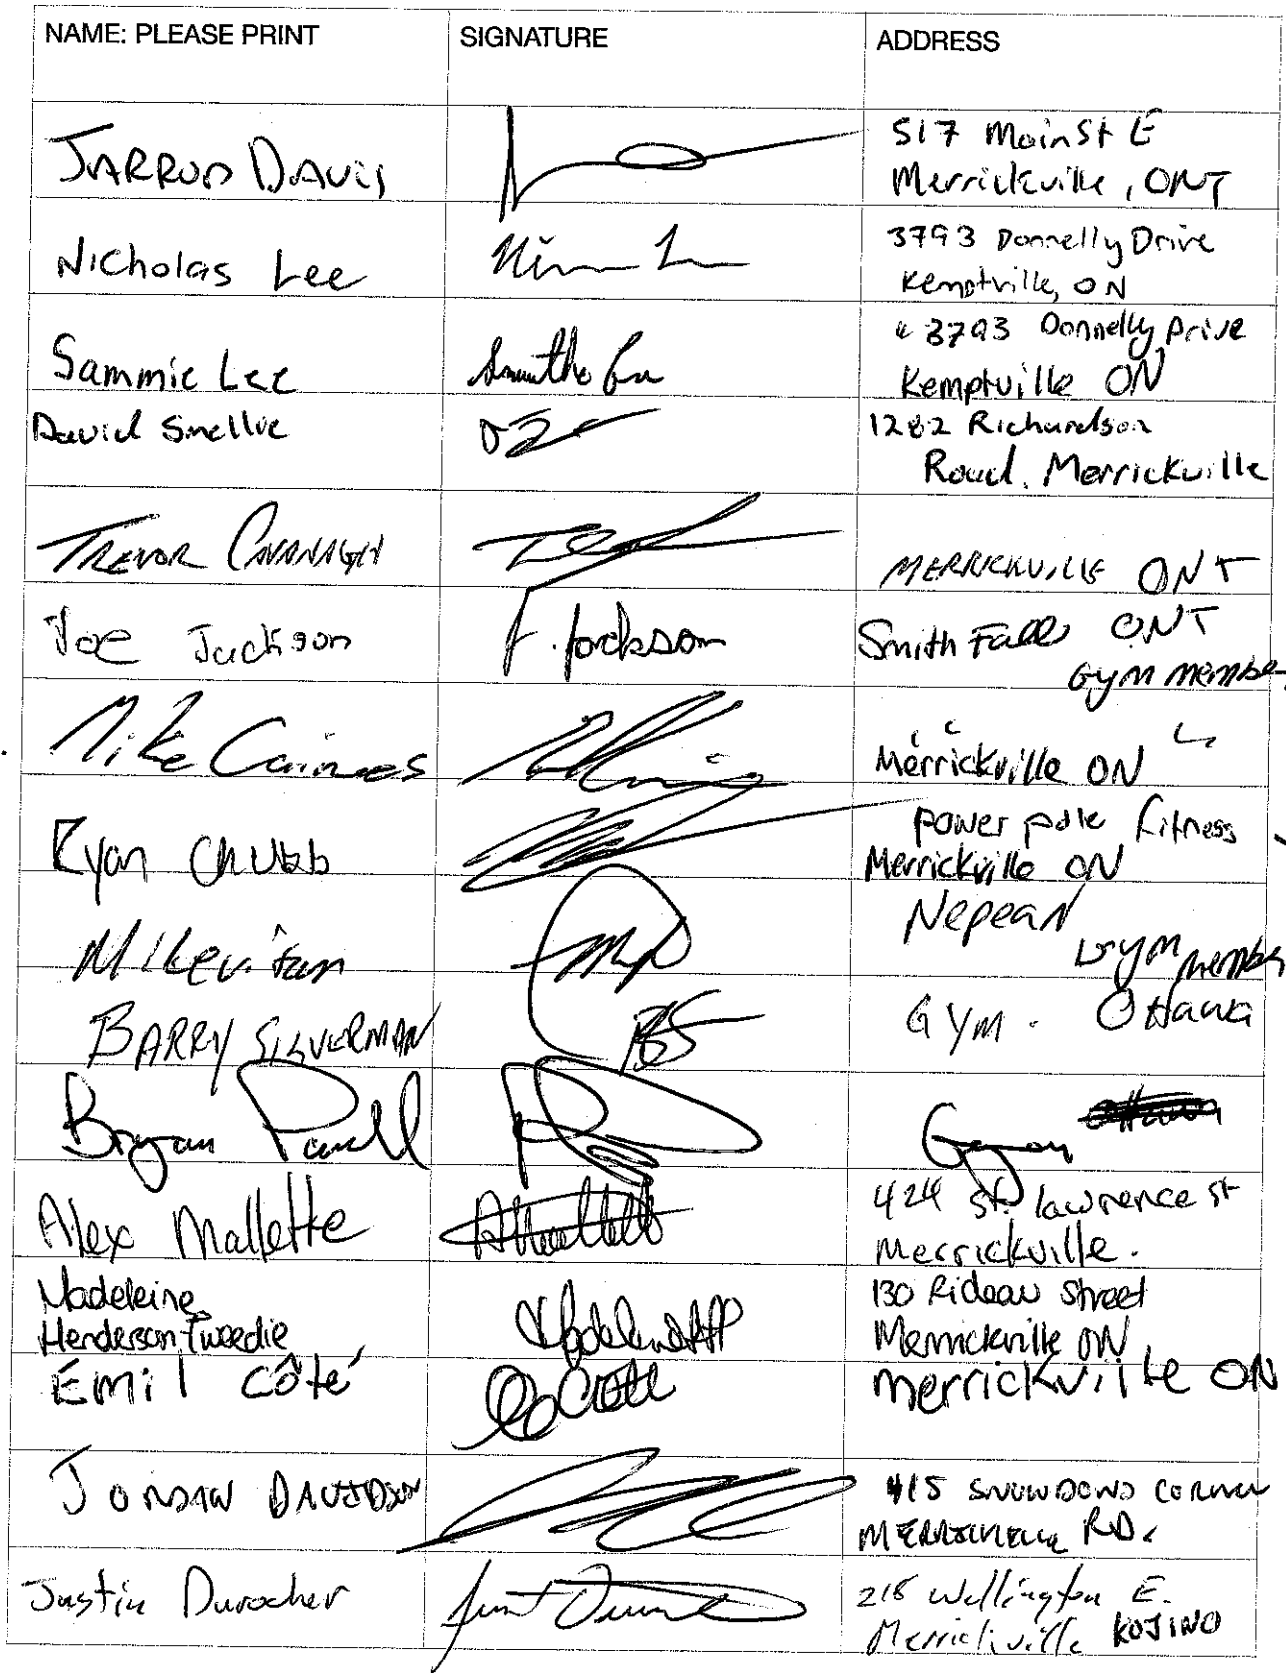 NAME: PLEASE PRINT SIGNATURE ADDRESS
JARROD DAVIS 517 Main St E
Merrickville, ONT
Nicholas Lee 3793 Donnelly Drive
Kemptville, ON
Sammie Lee Samantha Lee 3793 Donnelly Drive
Kemptville ON
David Smellie 1282 Richardson
Road. Merrickville
TREVOR CAVANAGH MERRICKVILLE ONT
Joe Jackson J. Jackson Smith Falls ONT
Gym member
Mike Cairnes Merrickville ON
Ryan Chubb power pole fitness
Merrickville ON
Nepean
Gym member
BARRY SILVERMAN BS GYM. Ottawa
Bryan Powell Gym
Alex Mallette 424 St. Lawrence St
Merrickville.
Madeleine 130 Rideau Street
Henderson-Tweedie Merrickville ON
Emil Côté merrickville ON
JORDAN DAVIDSON 415 SNOWDONS CORNER
RD.
Justin Durocher 218 Wellington E.
Merrickville K0J1N0